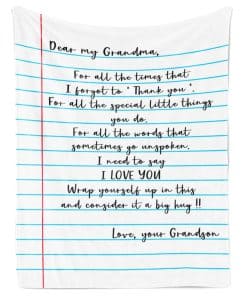 Dear my Grandma,
For all the times that
I forgot to ' Thank you '.
For all the special little things
you do.
For all the words that
sometimes go unspoken,
I need to say
I LOVE YOU
Wrap yourself up in this
and consider it a big hug !!
Love, your Grandson